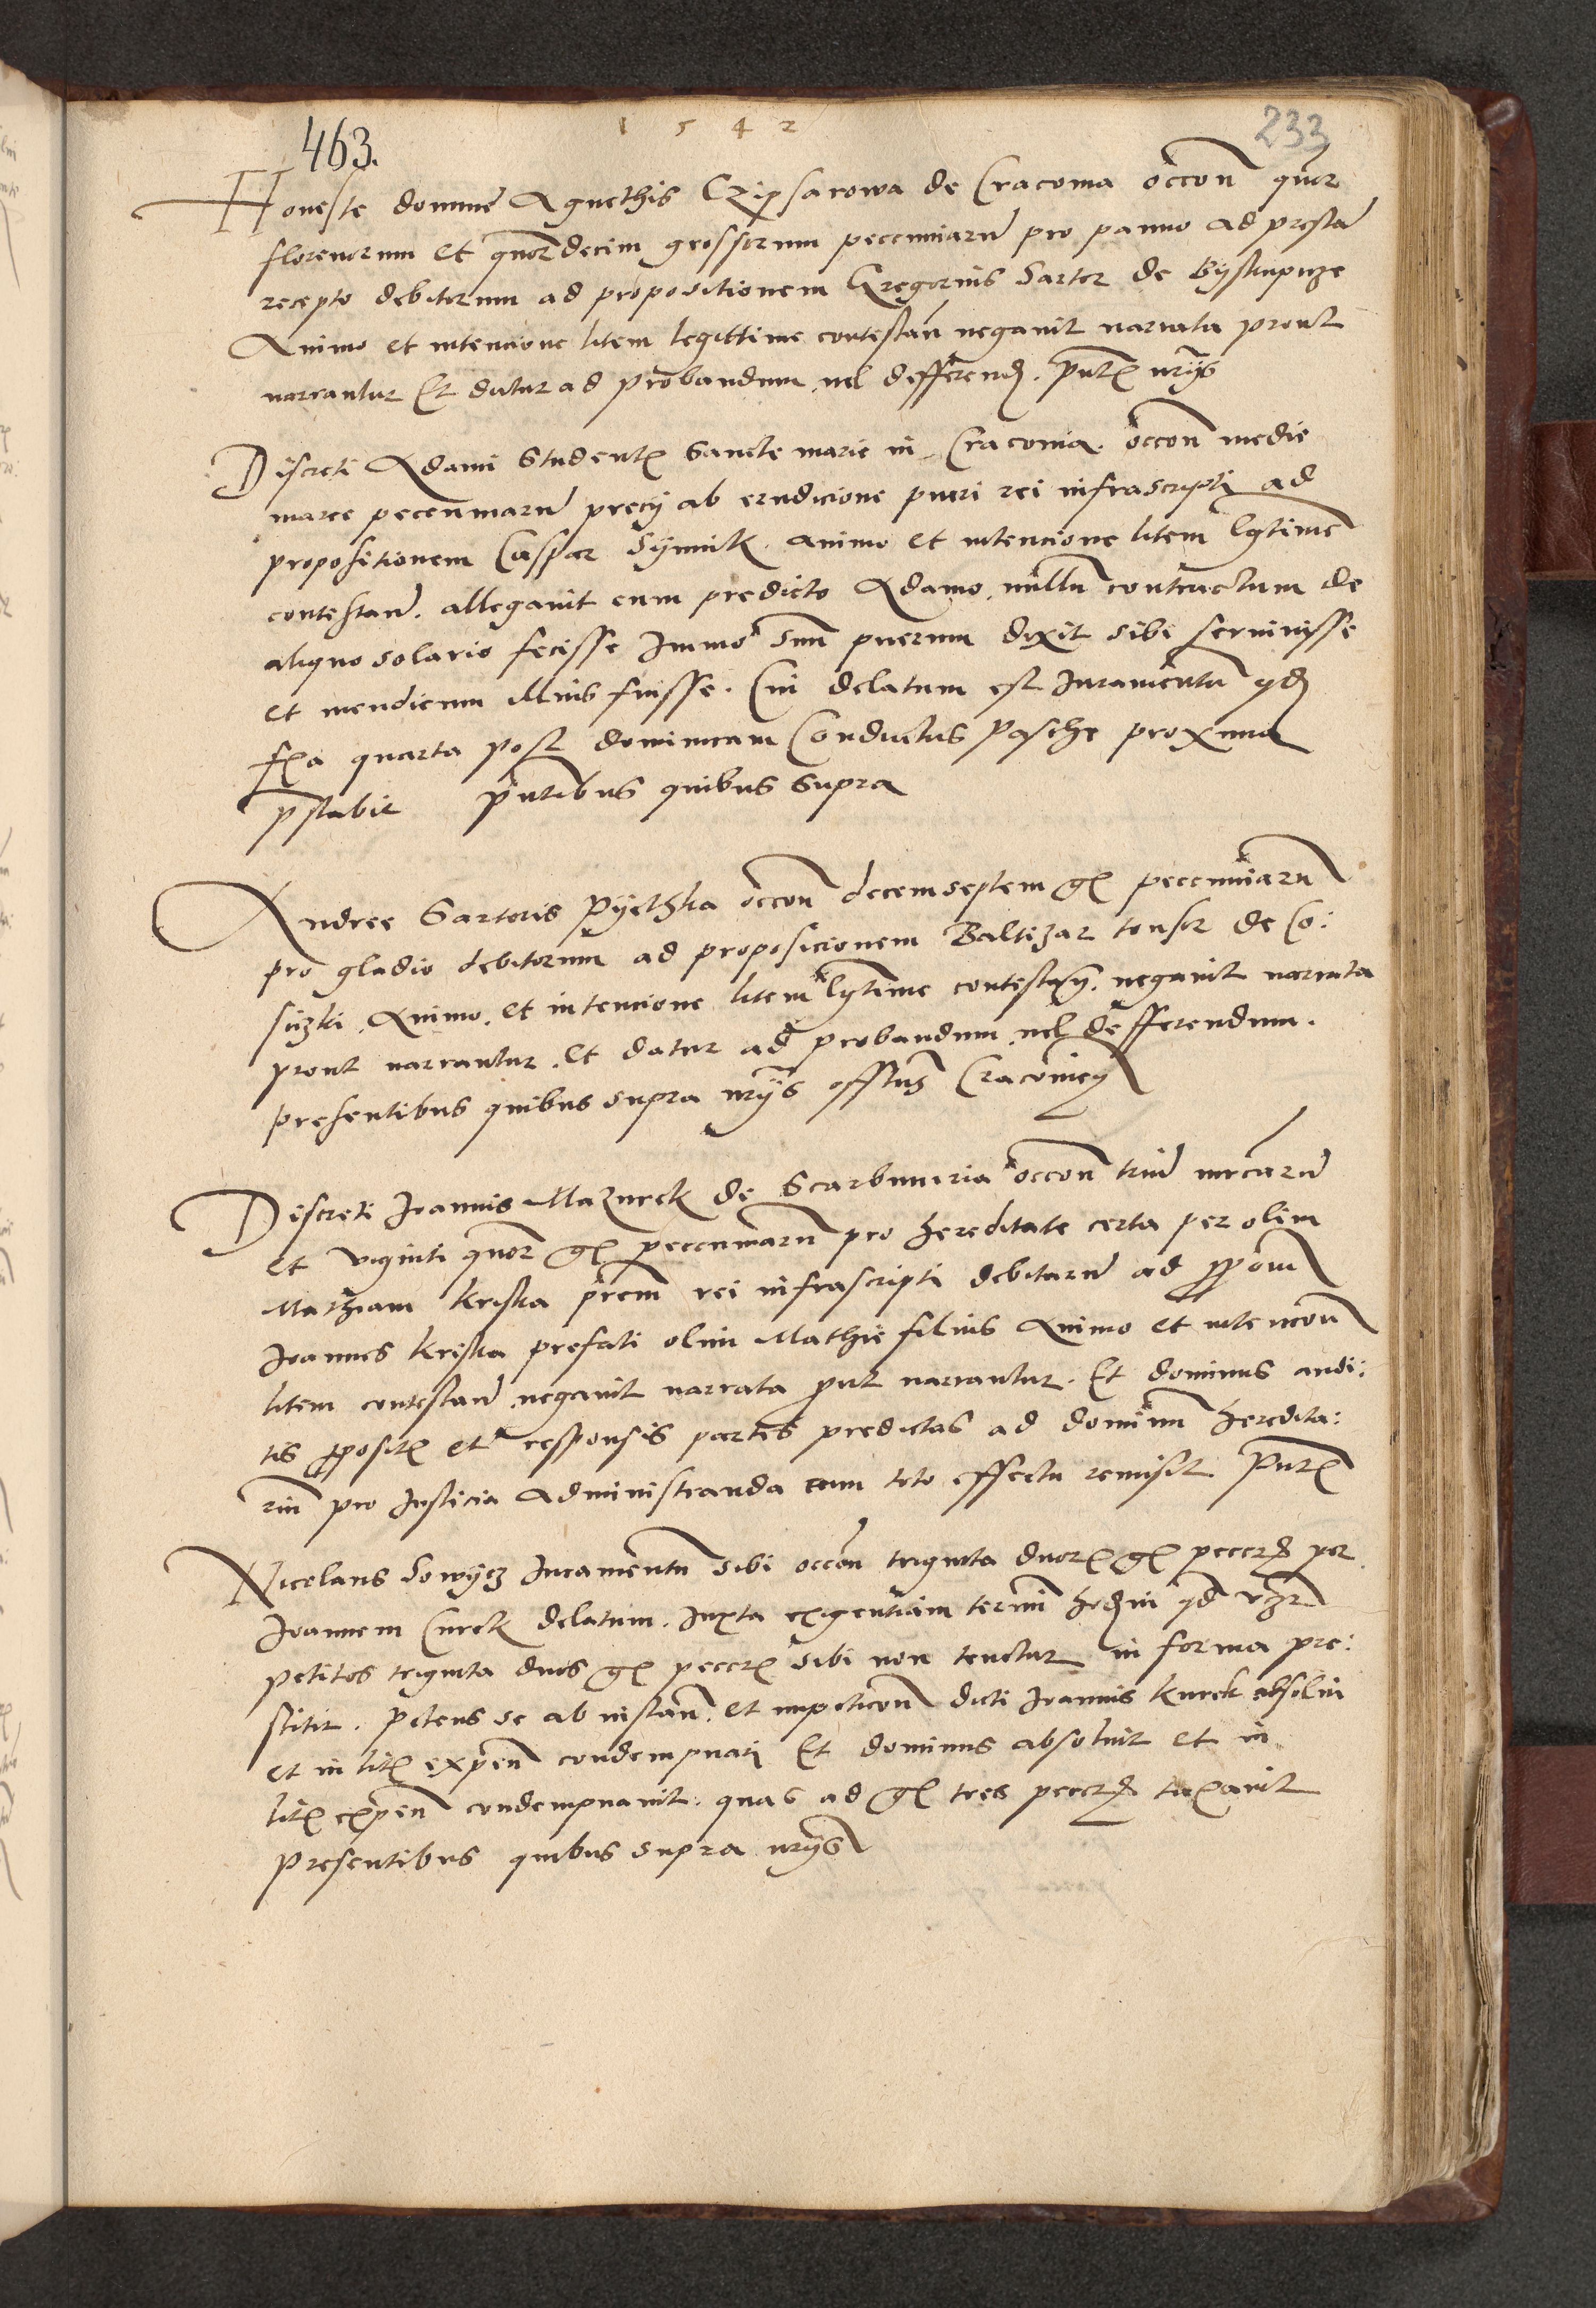 463.
1542
233
Honeste domine Agnethis Czipsarowa de Cracovia occon quor
florenorum et quordecim grossorum pecuniarum pro panno ad prestan
recepto debitorum ad propositionem Gregorius Sartor de Byskupicze
Animo et intencione litem legittime contestan negavit narrata prout
narrantur Et datur ad probandum vel defferend. pntt urys
Discreti Adami Student Sancte marie in Cracovia. occon medie
marce pecuniarum precy ab erudicione pueri rei infrascripti ad
propositionem Caspar Synnik. animo et intencione litem lgtime
contestan. allegavit cum predicto Adamo. nullum contractum de
aliquo solario fecisse Immo suum puerum dixit sibi servivisse
et mendicum illius fuisse. Cui delatum est Iuramentum qd
fra quarta post dominicam Conductus Pasche proxima
pstabit pntibus quibus supra
Andree Sartoris Pyethka occon decemseptem gr pecuniarum
pro gladio debitorum ad proposicionem Baltizar tonsor de Co:
suzki. Animo. et intencione litem lgtime contestan. negavit narrata
prout narrantur. et datur ad probandum vel defferendum.
presentibus quibus supra urys offitus Cracovien
Discreti Joannis Mazurek de Scarbimiria occon trium mrcarum
et viginti quor gr pecuniarum pro hereditate certa per olim
Mathiam Kriska prem rei infrascripti debitarum ad ppom
Joannes Kriska prefati olim Mathie filius Animo et intencon
litem contestan negavit narrata prout narrantur. Et dominus audi:
tis proposit et responsis partes predictas ad dominum heredita:
rium pro Justicia Administranda cum toto effectu remisit Pntt
Nicolaus Sowycz Iuramentum sibi occon triginta duor gr peccr per
Joannem Curek delatum. Iuxta exigentiam termini hodierni qd
petitos triginta duos gr peccr sibi non tenetur in forma pre:
stitit. petens se ab instan. et impeticon dicti Joannis Kurek absolvi
et in lit expen condempnari Et dominus absolvit et in
lit expen condempnavit. quas ad gr tres peccr taxavit
Presentibus quibus supra urys